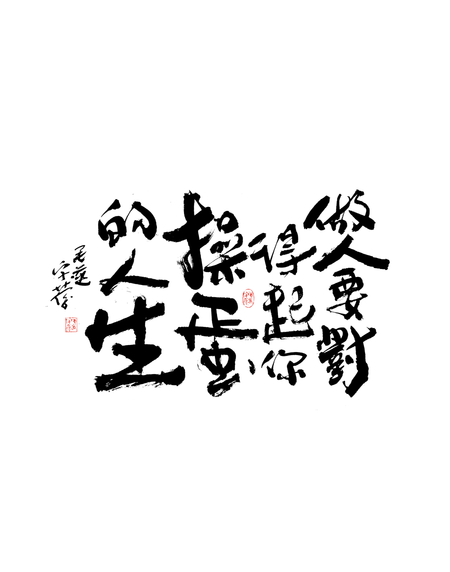 做人要對
得起你
操蛋
的人生